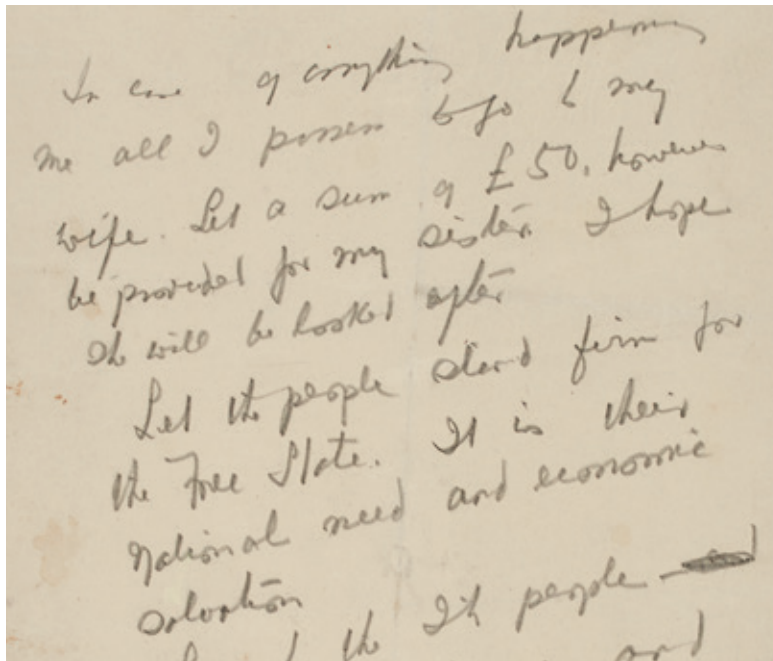 In case of anything happening
me all I possess to go to my
wife. Let a sum of £50, however
be provided for my sister. I hope
she will be looked after
Let the people stand firm for
the Free State. It is their
national need and economic
salvation
the Ish people
and